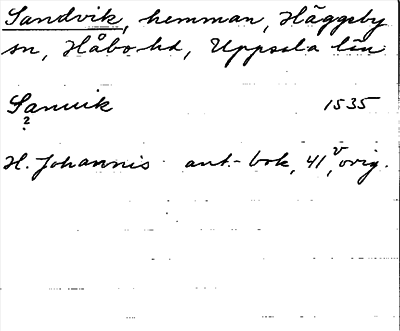 Sandvik, hemman, Häggeby
sn, Håbo hd, Uppsala län
Sanuik 1535
?
H. Johannis ant.-bok, 41 v, orig.